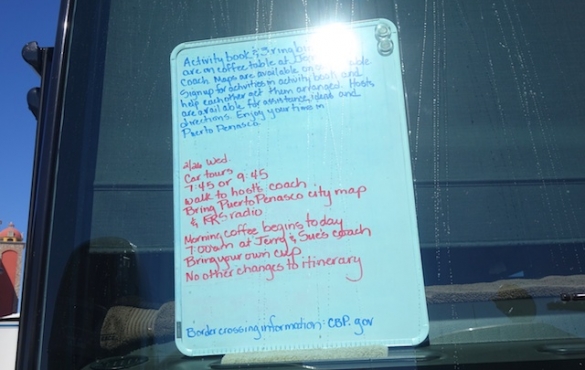 Activity book & 3 ring
are on coffee table at
Coach. Maps are available on
Sign up for activities in activity book and
help each other get them arranged. Hosts
are available for assistance, ideas and
directions. Enjoy your time in
Puerto Penasco
2/26 Wed.
Car tours
7:45 or 9:45
walk to hosts coach
Bring Puerto Penasco city map
& FRS radio
Morning coffee begins today
7:00am at Jerry & Sue's coach
Bring your own cup
No other changes to itinerary
Border crossing information: CBP.gov